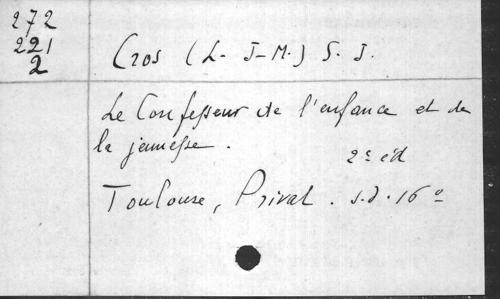 272
221
2
Cros (L-J-M.) S. J.
Le Confesseur de l'enfance et de
la jeunesse.
2e éd
Toulouse, Privat. s.d. 16º